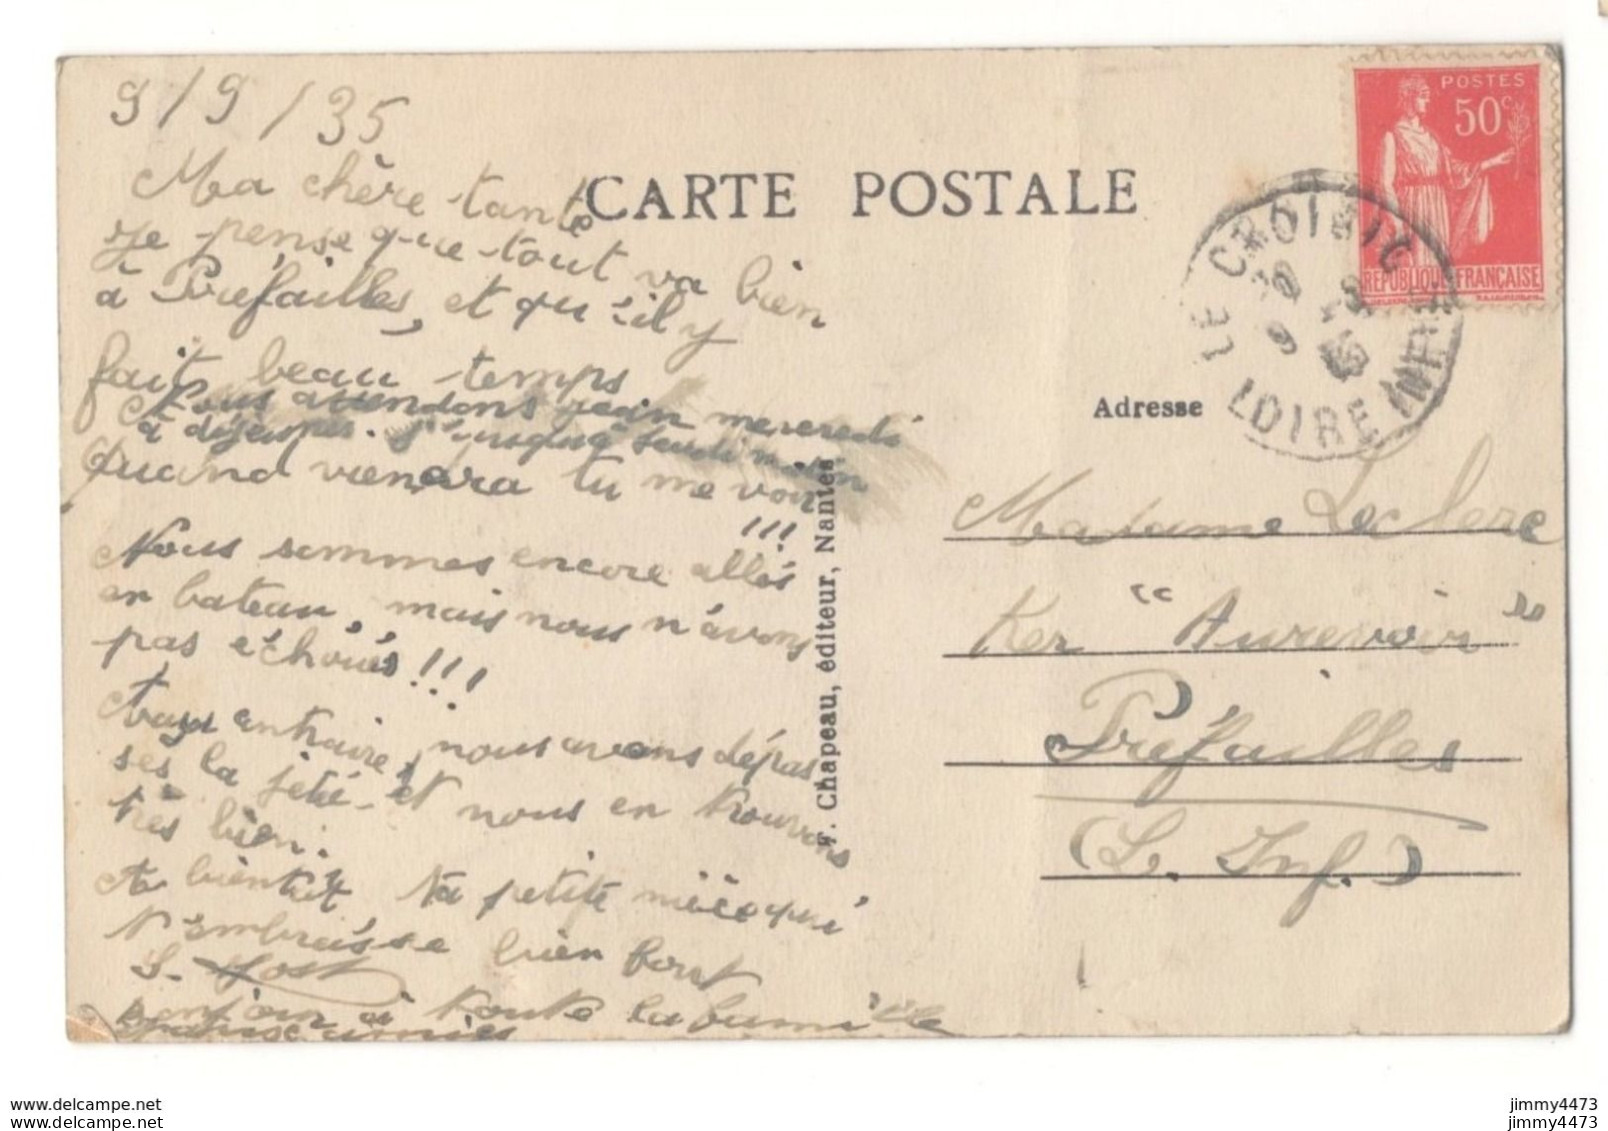 9/9/35
Ma chère tante
Je pense que tout va bien
à Préfailles, et qu'il y
fait beau temps
Vous attendons mercredi
à déjeuner. jusqu'à Jeudi matin
Quand viendra tu me voir
!!!
Nous sommes encore allés
en bateau, mais nous n'avons
pas échoués!!!
nous avons dépas-
sés la jeté et nous en trouvons
très bien.
A bientôt Ta petite nièce qui
t'embrasse bien fort
à toute la famille
amies
CARTE POSTALE
Chapeau, éditeur, Nantes
POSTES
50c
REPUBLIQUE FRANÇAISE
LE CROISIC
LOIRE INFRE
Adresse
Madame Leclerc
Ker "Aurevoir"
Préfailles
(L. Inf.)
www.delcampe.net
www.delcampe.net
jimmy4473
jimmy4473